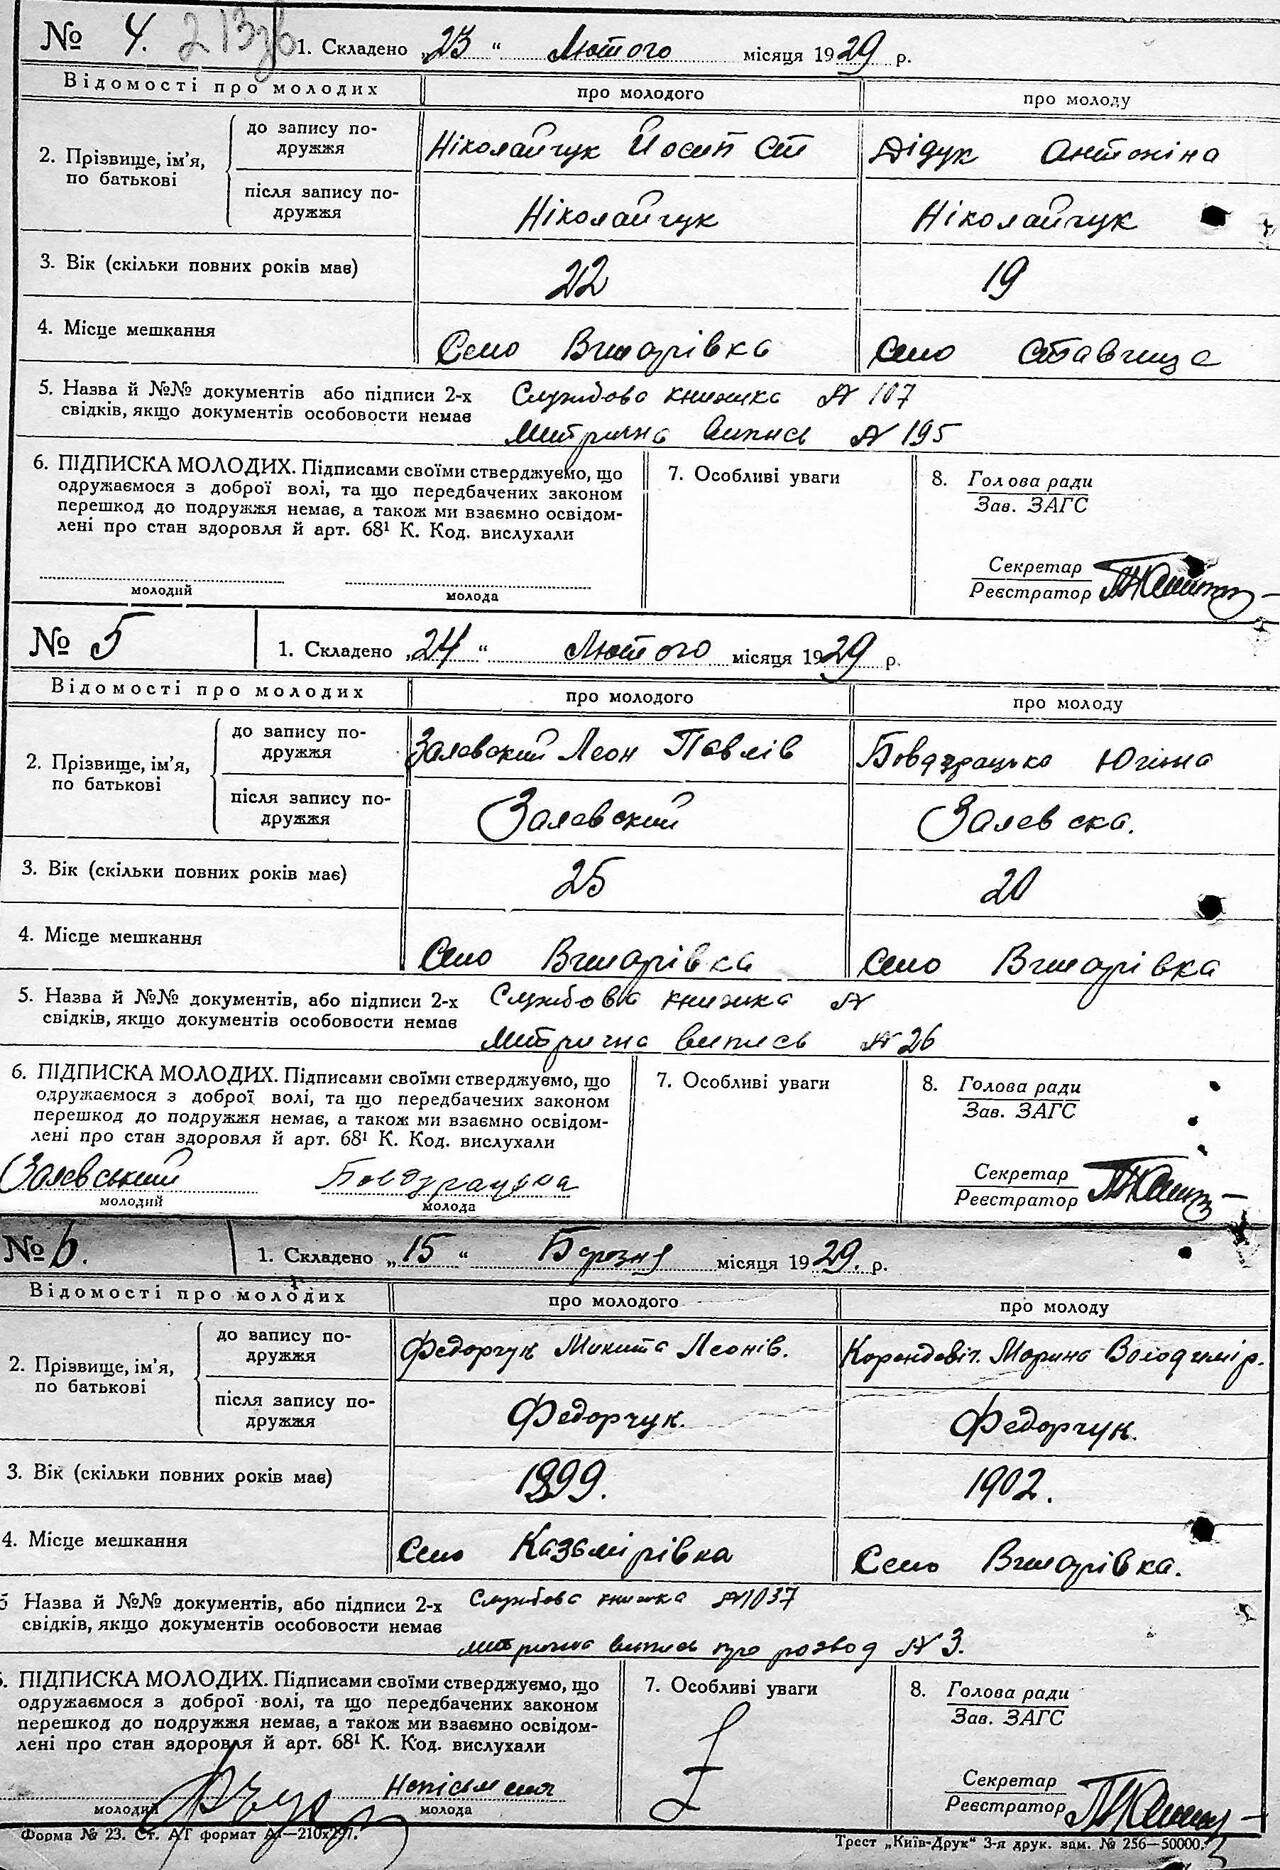 № 4. 213зв 1. Складено „23“ Лютого місяця 1929 р.
Відомості про молодих про молодого про молоду
2. Прізвище, ім’я, по батькові
до запису подружжя Ніколайчук Йосип Ст Дідук Антоніна
після запису подружжя Ніколайчук Ніколайчук
3. Вік (скільки повних років має) 22 19
4. Місце мешкання Село Вишарівка Село Ставище
5. Назва й №№ документів або підписи 2-х Службова книжка № 107
свідків, якщо документів особовости немає Митрична випись № 195
6. ПІДПИСКА МОЛОДИХ. Підписами своїми стверджуємо, що
одружаємося з доброї волі, та що передбачених законом
перешкод до подружжя немає, а також ми взаємно освідом-
лені про стан здоровля й арт. 68¹ К. Код. вислухали
молодий молода
7. Особливі уваги
8. Голова ради
Зав. ЗАГС
Секретар
Реєстратор
№ 5 1. Складено „24“ Лютого місяця 1929 р.
Відомості про молодих про молодого про молоду
2. Прізвище, ім’я, по батькові
до запису подружжя Залевский Леон Павлів Югина
після запису подружжя Залевский Залевска.
3. Вік (скільки повних років має) 25 20
4. Місце мешкання Село Вишарівка Село Вишарівка
5. Назва й №№ документів, або підписи 2-х Службова книжка №
свідків, якщо документів особовости немає Митрична випись № 26
6. ПІДПИСКА МОЛОДИХ. Підписами своїми стверджуємо, що
одружаємося з доброї волі, та що передбачених законом
перешкод до подружжя немає, а також ми взаємно освідом-
лені про стан здоровля й арт. 68¹ К. Код. вислухали
Залевський
молодий молода
7. Особливі уваги
8. Голова ради
Зав. ЗАГС
Секретар
Реєстратор
№ 6. 1. Складено „15“ Березня місяця 1929. р.
Відомості про молодих про молодого про молоду
2. Прізвище, ім’я, по батькові
до запису подружжя Федорчук Микита Леонів. Корендовіч. Марина Володимір.
після запису подружжя Федорчук. Федорчук.
3. Вік (скільки повних років має) 1899. 1902.
4. Місце мешкання Село Казьмірівка Село Вишарівка.
5 Назва й №№ документів, або підписи 2-х Службова книжка №1037
свідків, якщо документів особовости немає митрична випись про розвод № 3.
6. ПІДПИСКА МОЛОДИХ. Підписами своїми стверджуємо, що
одружаємося з доброї волі, та що передбачених законом
перешкод до подружжя немає, а також ми взаємно освідом-
лені про стан здоровля й арт. 68¹ К. Код. вислухали
Неписьменна
молодий молода
7. Особливі уваги
8. Голова ради
Зав. ЗАГС
Секретар
Реєстратор
Форма № 23. Ст. А1 формат А4—210х297.
Трест „Київ-Друк“ 3-я друк. зам. № 256—50000.